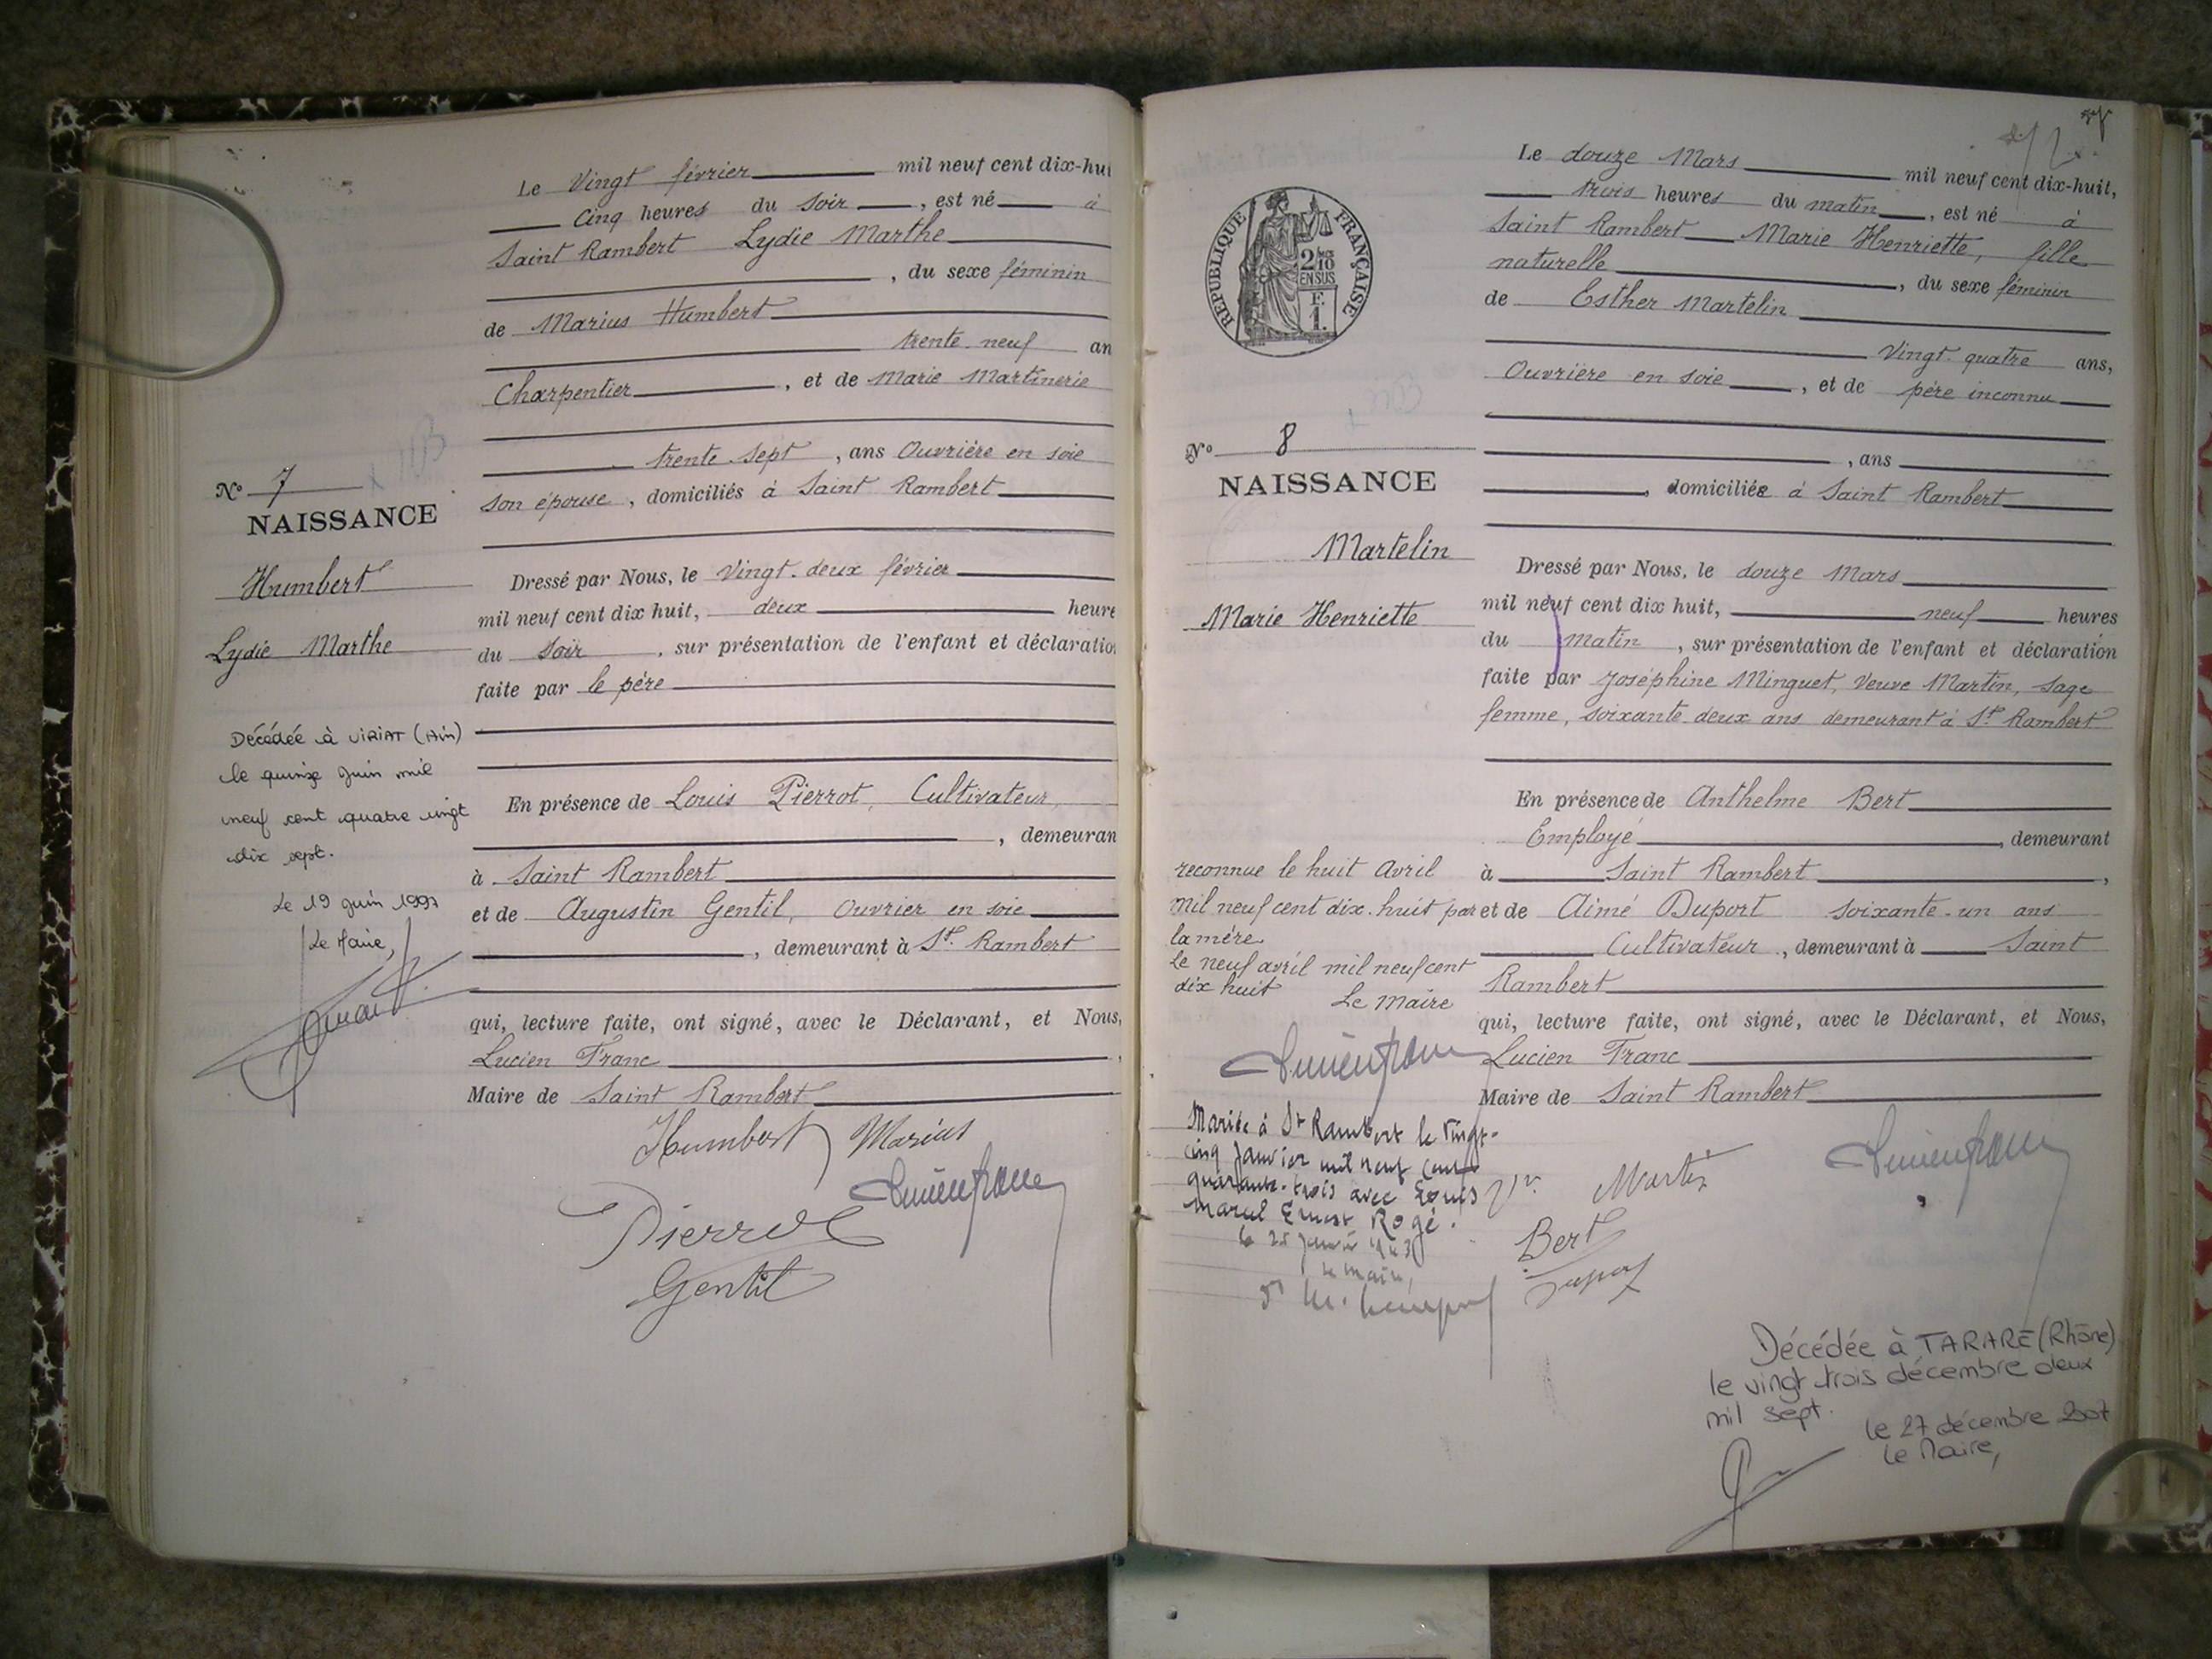 Le Vingt février mil neuf cent dix-hui
Cinq heures du soir, est né à
Saint Rambert Lydie Marthe
, du sexe féminin
de Marius Humbert
trente neuf an
Charpentier, et de Marie Martinerie
trente sept, ans Ouvrière en soie
son épouse, domiciliés à Saint Rambert
N° 7
NAISSANCE
Humbert
Lydie Marthe
Dressé par Nous, le Vingt-deux février
mil neuf cent dix huit, deux heure
du soir, sur présentation de l'enfant et déclaratio
faite par le père
Décédée à VIRIAT (Ain)
le quinze juin mil
neuf cent quatre vingt
dix sept.
Le 19 juin 1997
Le Maire,
En présence de Louis Pierrot, Cultivateur,
, demeuran
à Saint Rambert
et de Augustin Gentil, Ouvrier en soie
, demeurant à St. Rambert
qui, lecture faite, ont signé, avec le Déclarant, et Nous,
Lucien Franc
Maire de Saint Rambert
Humbert Marius
Lucien franc
Pierrot
Gentil
Le douze Mars mil neuf cent dix-huit,
trois heures du matin, est né à
Saint Rambert Marie Henriette, fille
naturelle, du sexe féminin
de Esther Martelin
Vingt-quatre ans,
Ouvrière en soie, et de père inconnu
, ans
, domiciliée à Saint Rambert
REPUBLIQUE FRANÇAISE
2/10
EN SUS
F.
1.
N° 8
NAISSANCE
Martelin
Marie Henriette
Dressé par Nous, le douze Mars
mil neuf cent dix huit, neuf heures
du matin, sur présentation de l'enfant et déclaration
faite par Joséphine Minguet, Veuve Martin, sage
femme, soixante-deux ans demeurant à St. Rambert
En présence de Anthelme Bert
Employé, demeurant
à Saint Rambert,
et de Aimé Duport soixante-un ans
Cultivateur, demeurant à Saint
Rambert
qui, lecture faite, ont signé, avec le Déclarant, et Nous,
Lucien Franc
Maire de Saint Rambert
reconnue le huit Avril
mil neuf cent dix-huit par
la mère
Le neuf avril mil neuf cent
dix huit Le Maire
Lucien franc
Mariée à St Rambert le vingt-
cinq Janvier mil neuf cent
quarante-trois avec Louis
Marcel Ernest Rogé.
le 25 Janvier 1943
le maire,
Vve Martin
Lucien franc
Bert
Duport
Décédée à TARARE (Rhône)
le vingt trois décembre deux
mil sept.
le 27 décembre 2007
Le Maire,